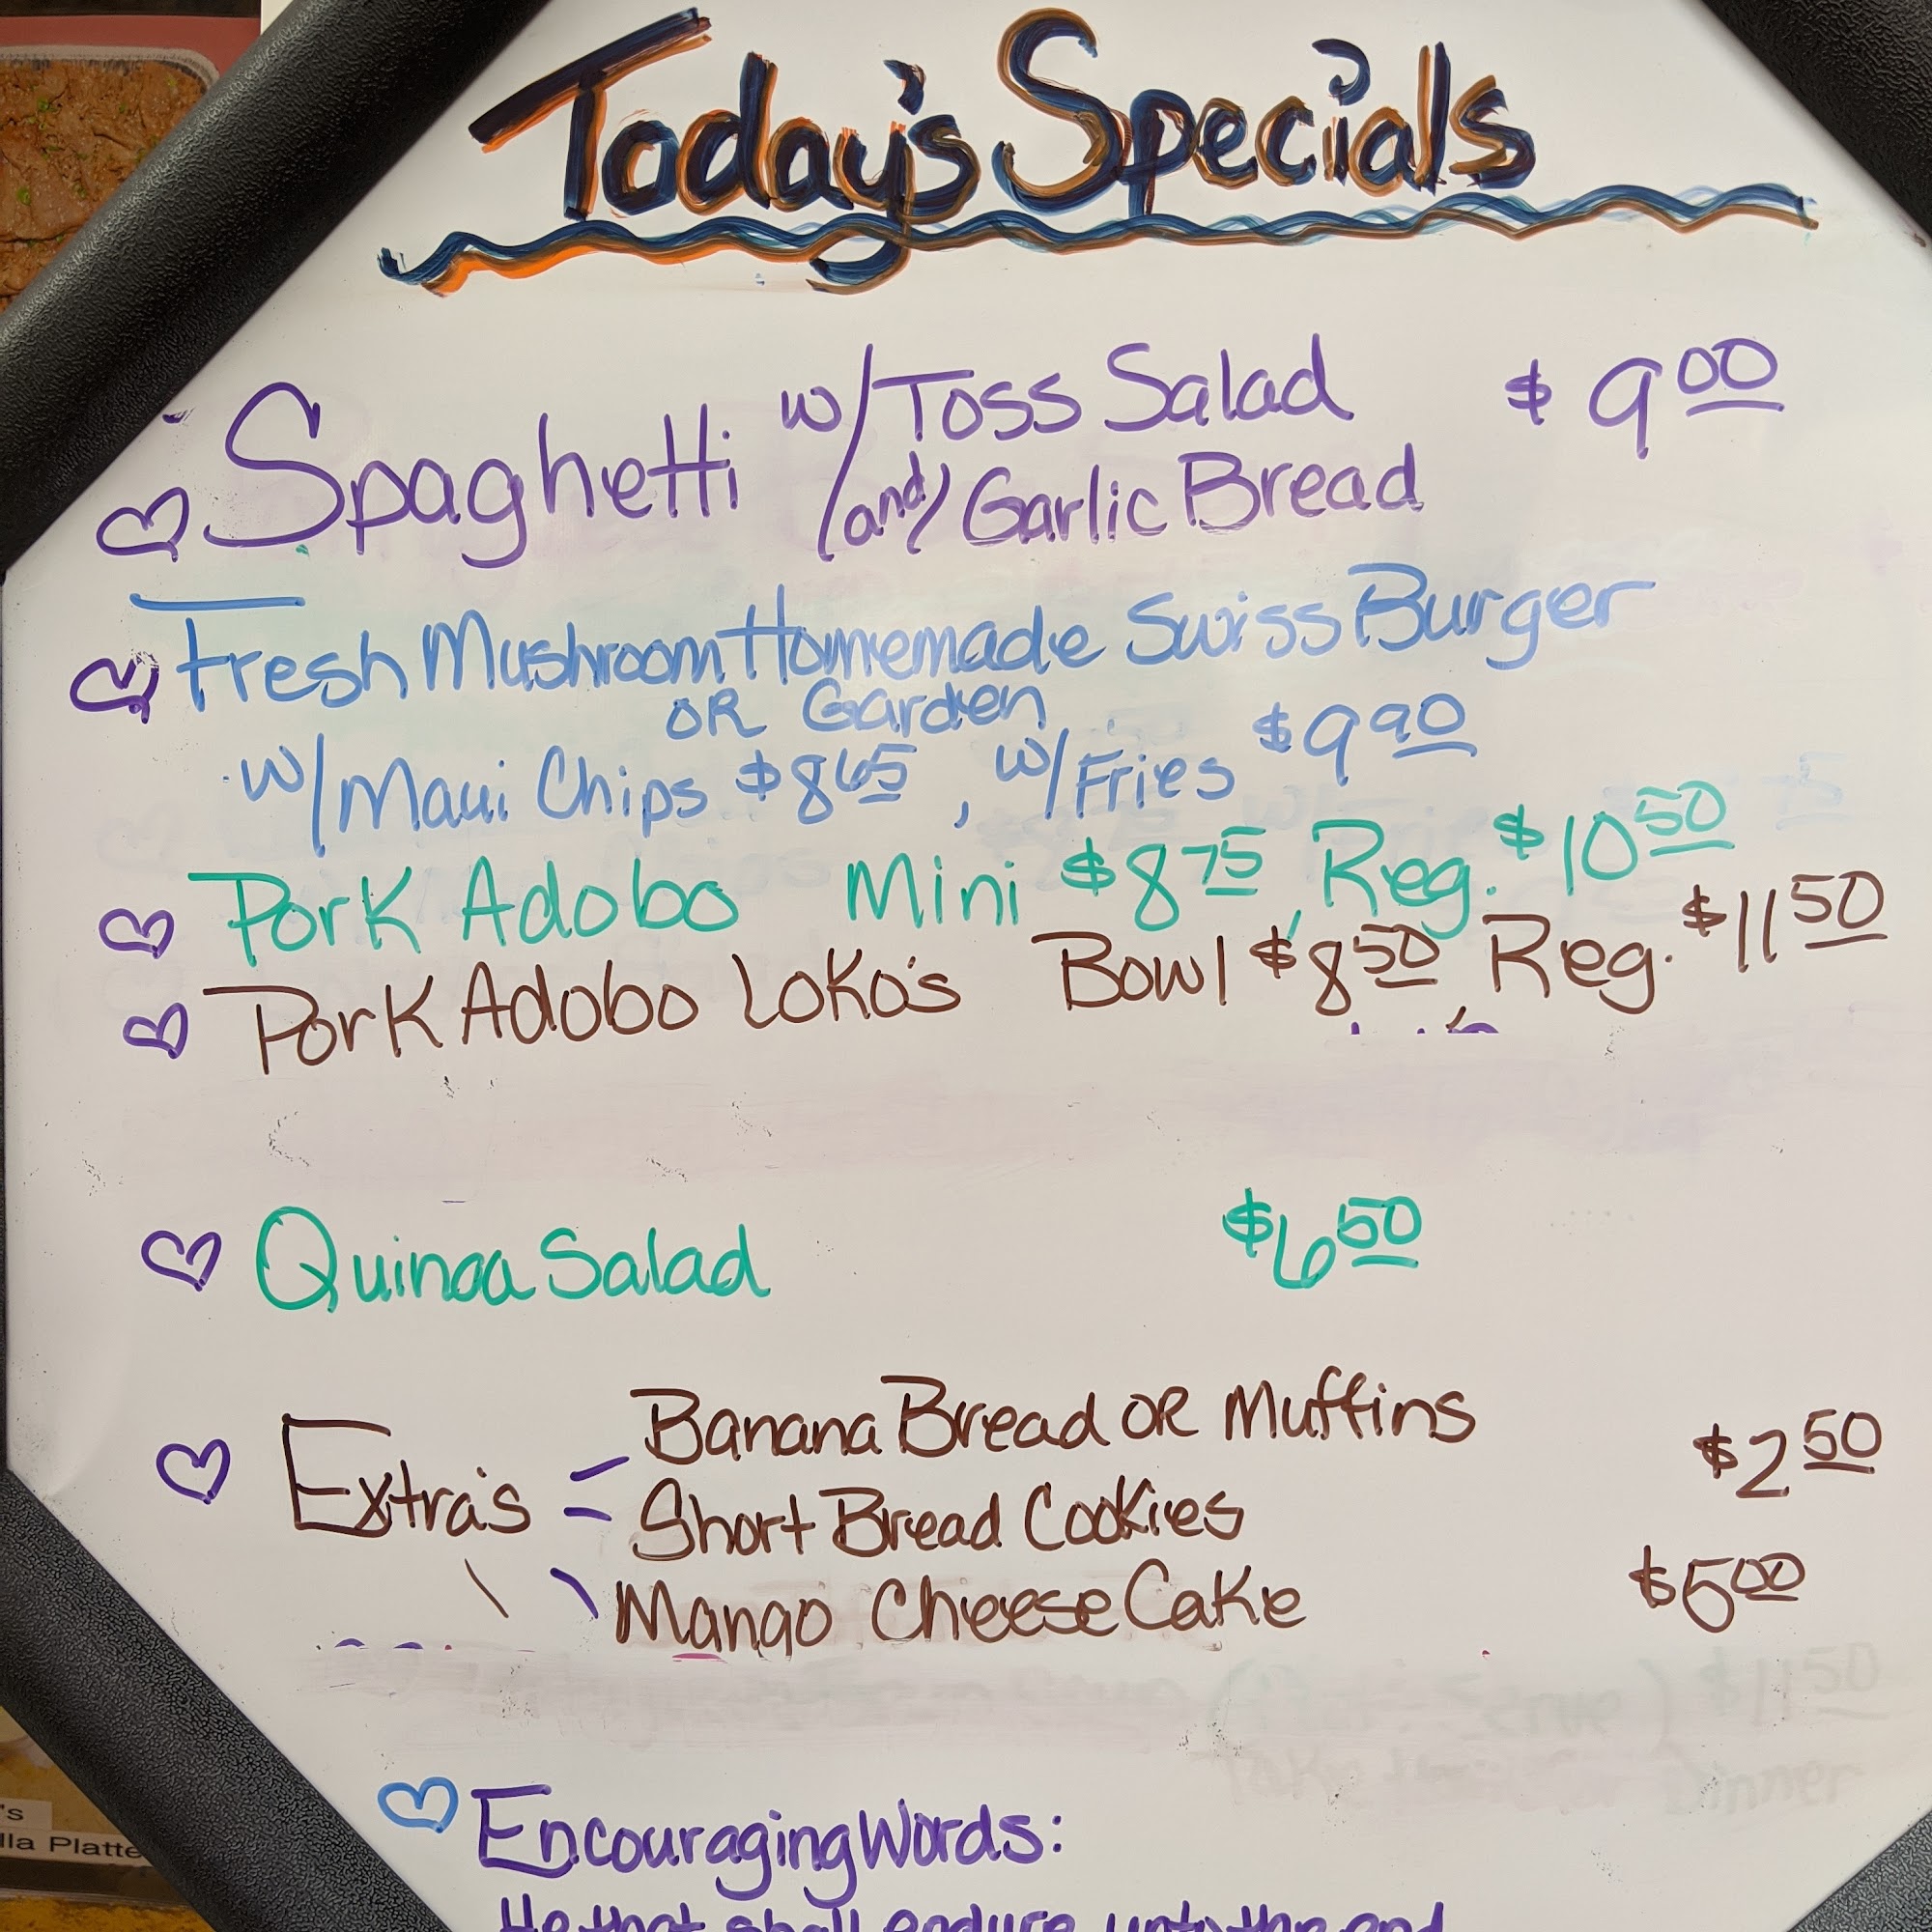 Today's Specials
Spaghetti w/Toss Salad $9.00
/and/ Garlic Bread
Fresh Mushroom Homemade Swiss Burger
OR Garden
w/Maui Chips $8.65, w/Fries $9.90
Pork Adobo Mini $8.75, Reg. $10.50
Pork Adobo Loko's Bowl $8.50, Reg. $11.50
Quinoa Salad $6.50
Extra's Banana Bread OR Muffins
Short Bread Cookies $2.50
Mango Cheese Cake $5.00
$11.50
Encouraging Words:
He that shall endure unto the end
's
lla Platte